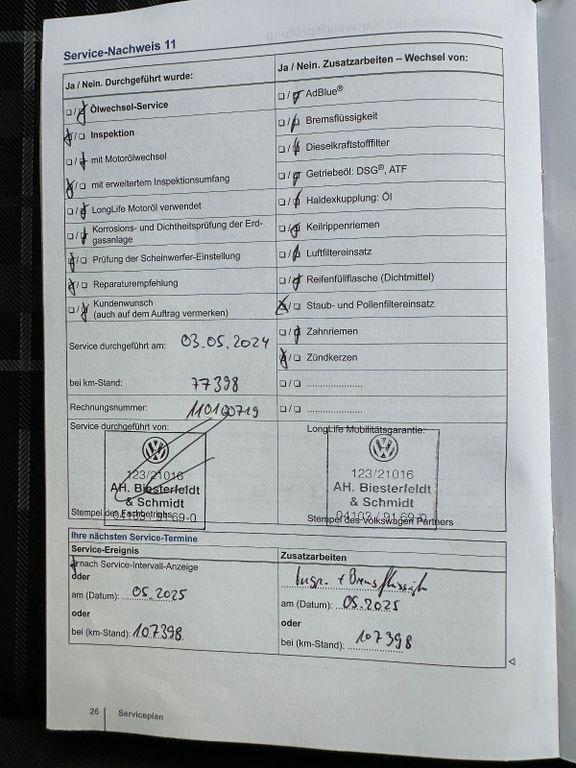 Service-Nachweis 11
Ja / Nein. Durchgeführt wurde:
☐/☒ Ölwechsel-Service
☒/☐ Inspektion
☐/☒ mit Motorölwechsel
☒/☐ mit erweitertem Inspektionsumfang
☐/☒ LongLife Motoröl verwendet
☐/☒ Korrosions- und Dichtheitsprüfung der Erd-
gasanlage
☒/☐ Prüfung der Scheinwerfer-Einstellung
☒/☐ Reparaturempfehlung
☐/☒ Kundenwunsch
(auch auf dem Auftrag vermerken)
Service durchgeführt am: 03.05.2024
bei km-Stand: 77398
Rechnungsnummer: 110100719
Service durchgeführt von:
123/21016
AH. Biesterfeldt
& Schmidt
04103 / 91 69-0
Stempel des Fachbetriebs
Ja / Nein. Zusatzarbeiten – Wechsel von:
☐/☒ AdBlue®
☐/☒ Bremsflüssigkeit
☐/☒ Dieselkraftstofffilter
☐/☒ Getriebeöl: DSG®, ATF
☐/☒ Haldexkupplung: Öl
☐/☒ Keilrippenriemen
☐/☒ Luftfiltereinsatz
☐/☒ Reifenfüllflasche (Dichtmittel)
☒/☐ Staub- und Pollenfiltereinsatz
☐/☒ Zahnriemen
☒/☐ Zündkerzen
☐/☐ .....................
☐/☐ .....................
LongLife Mobilitätsgarantie:
123/21016
AH. Biesterfeldt
& Schmidt
04103 / 91 69-0
Stempel des Volkswagen Partners
Ihre nächsten Service-Termine
Service-Ereignis
nach Service-Intervall-Anzeige
oder
am (Datum): 05.2025
oder
bei (km-Stand): 107398
Zusatzarbeiten
Insp. + Bremsflüssigk
am (Datum): 05.2025
oder
bei (km-Stand): 107398
26 Serviceplan